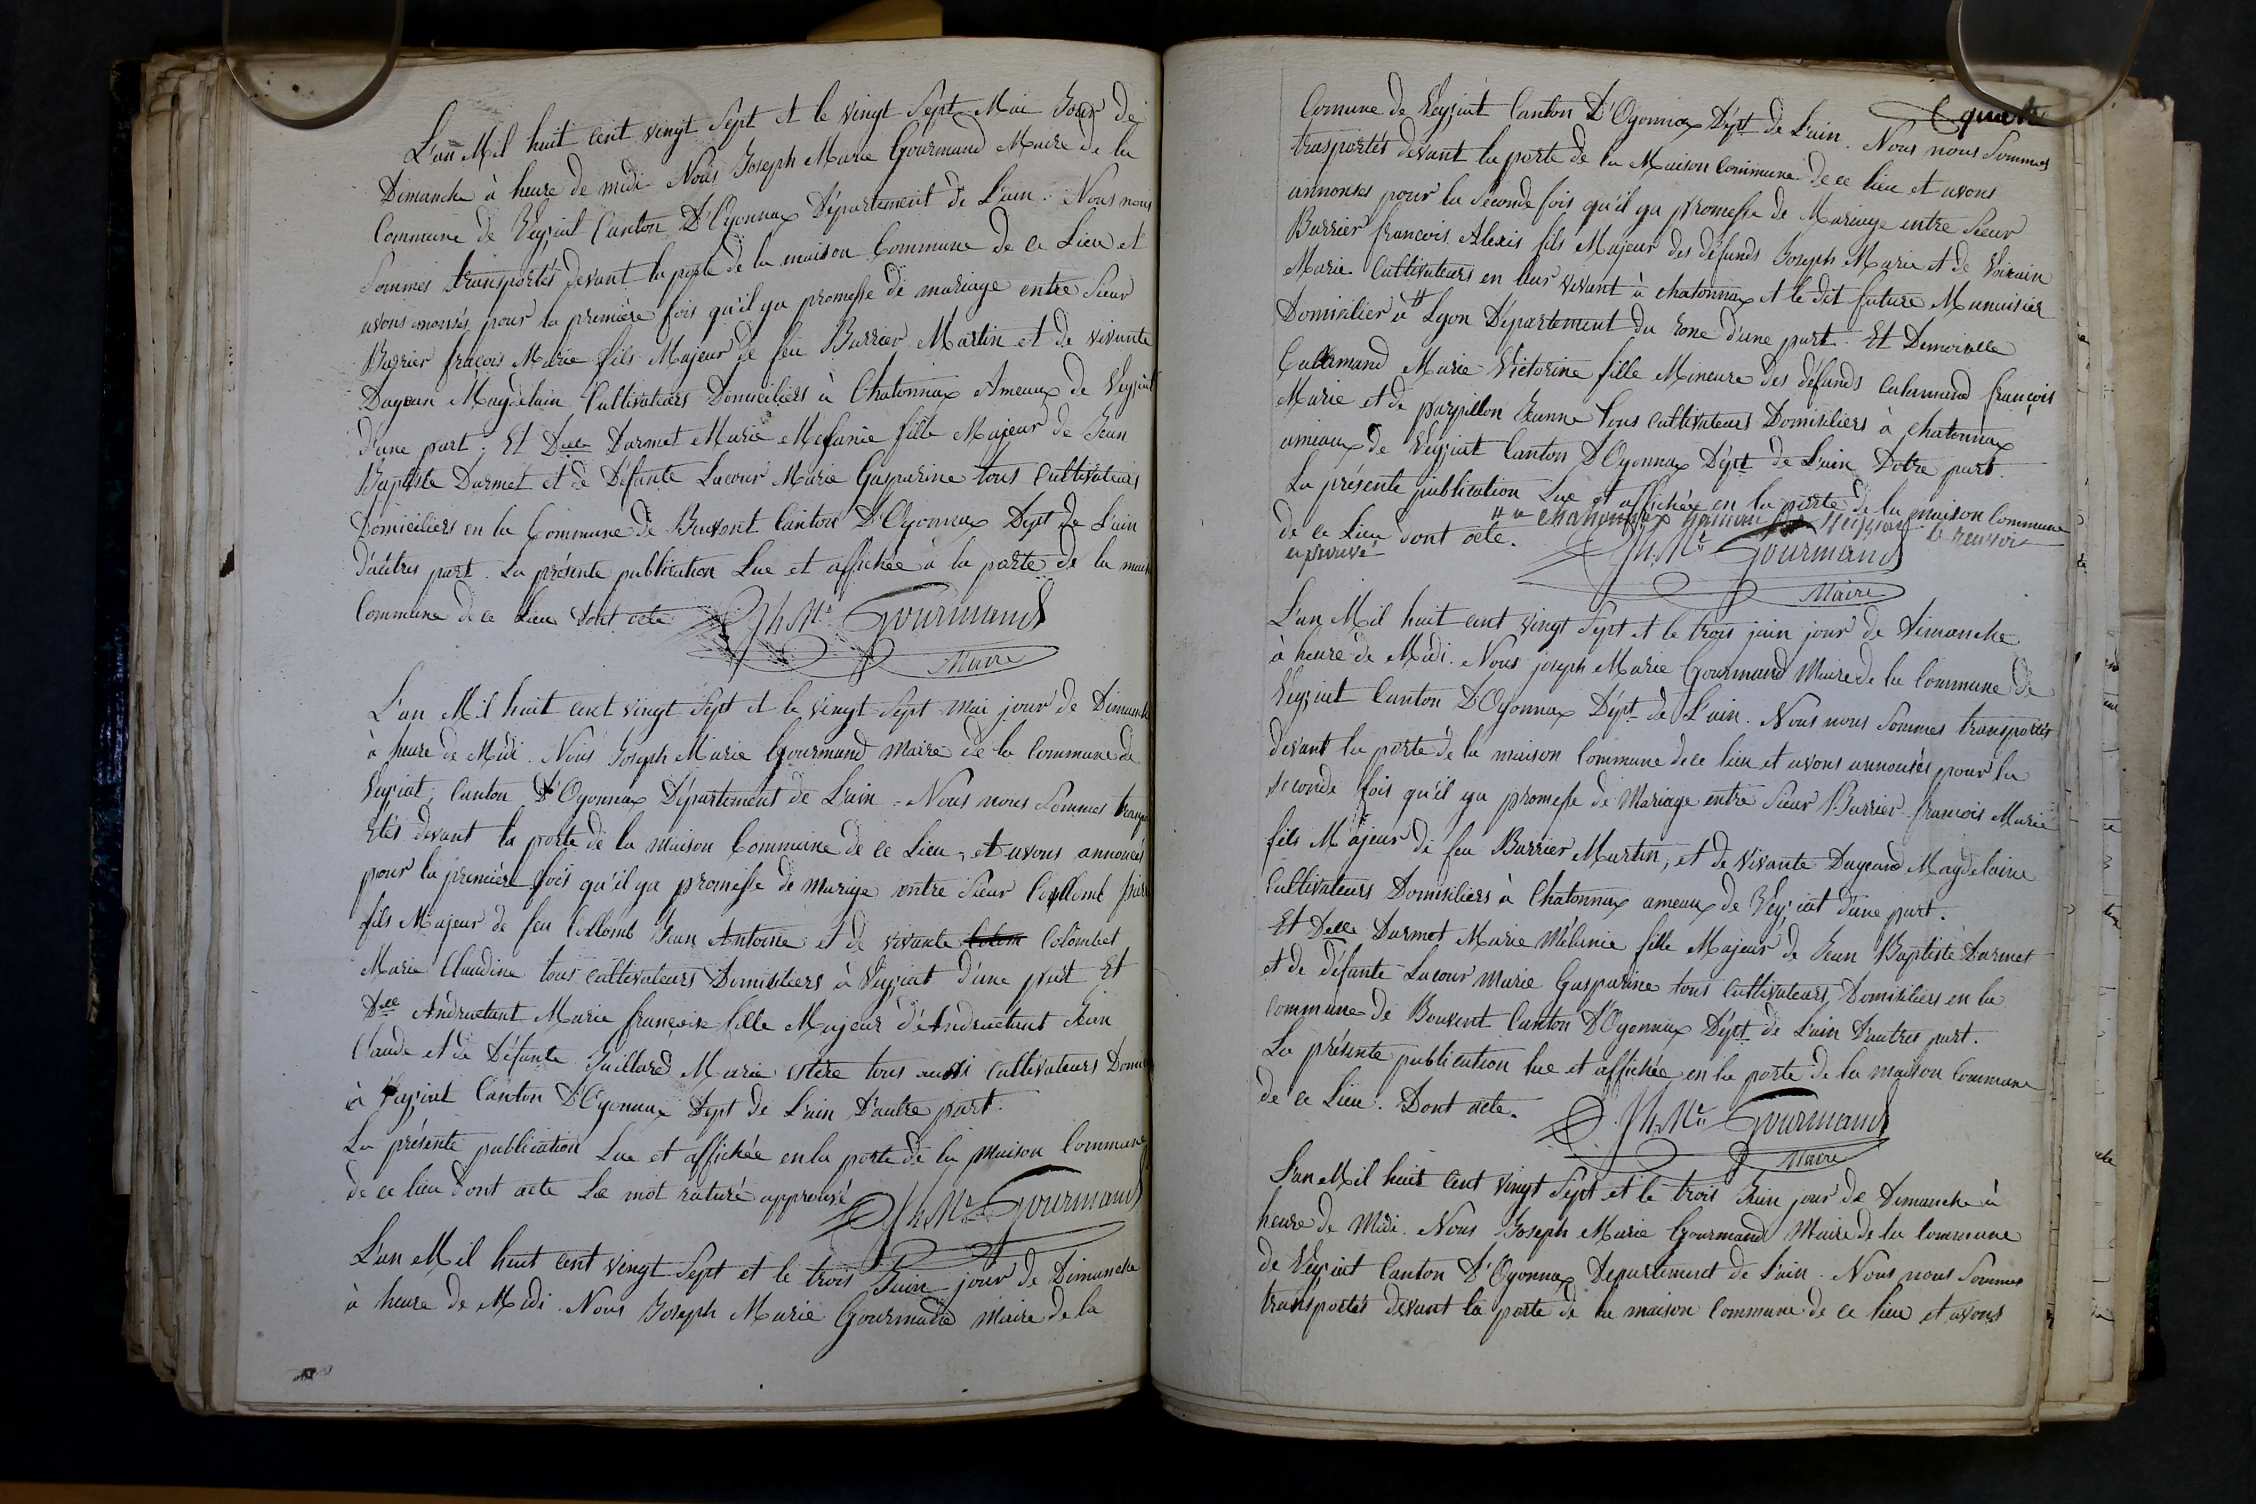 L'an Mil huit cent vingt Sept et le vingt Sept Mai Jour de
Dimanche à heure de midi Nous Joseph Marie Gourmand Maire de la
Commune de Veyziat Canton D'Oyonnax Département de L'ain. Nous nous
Sommes transportés devant la porte de la maison Commune de ce Lieu et
avons anonsés pour la première fois qu'il ya promesse de mariage entre Sieur
Burrier fraçois Marie fils Majeur de feu Burrier Martin et de vivante
Magdelain Cultivateurs Domiciliers à Chatonnax Ameaux de Veyziat
d'une part. Et Dlle Darmet Marie Mélanie fille Majeur de Jean
Baptiste Darmet et de Défante Lacour Marie Gasparine tous Cultivateurs
Domiciliers en la Commune de Bouvent Canton D'Oyonnax Dept de L'ain
d'autres part. La présente publication Lue et affichée à la porte de la mais
Commune de ce Lieu dont acte Jh Me Gourmand
Maire
L'an Mil huit cent vingt Sept et le vingt Sept Mai jour de Dimanche
à heure de Midi. Nous Joseph Marie Gourmand Maire de la Commune de
Veyziat, Canton D'Oyonnax Département de L'ain. Nous nous Sommes transpo
rtés devant la porte de la maison Commune de ce Lieu, et avons annoncés
pour la première fois qu'il ya promesse de mariage entre Sieur Collomb
fils Majeur de feu Collomb Jean Antoine et de vivante Colom Colombet
Marie Claudine tous cultivateurs Domiciliers à Veyziat d'une part Et
Dlle Andruetant Marie françoise fille Majeur d'Andruetant Jean
Claude et de Défante Guillard Marie estère tous aussi cultivateurs Domic
à Veyziat Canton D'Oyonnax Dept de L'ain D'autre part.
La présente publication Lue et affichée en la porte de la maison Commune
de ce lieu dont acte Le mot raturé approuvé Jh Me Gourmand
L'an Mil huit cent vingt Sept et le trois Juin jour de Dimanche
à heure de Midi. Nous Joseph Marie Gourmand Maire de la
Comune de Veyziat Canton D'Oyonnax Dépt de L'ain. Nous nous Sommes
trasportés devant la porte de la Maison commune de ce lieu et avons
annonses pour la Seconde fois qu'il ya promesse de Mariage entre Sieur
Burrier francois Alexis fils Majeur des défunds Joseph Marie et de Voirain
Marie Cultivateurs en leur vivant à chatonnax et le dit future Menuisier
Domicilier à Lyon Département du rone d'une part. Et Demoiselle
Calamand Marie Victorine fille Mineure des défunds Calamand françois
Marie et de parpillon Jeanne tous cultivateurs Domiciliers à chatonnax
ameaux de Veyziat Canton D'Oyonnax Dépt de L'ain D'otre part.
La présente publication Lue et affichée en la porte de la maison Commune
de ce Lieu dont acte.
approuvé Jh Me Gourmand
Maire
L'an Mil huit cent vingt Sept et le trois juin jour de Dimanche
à heure de Midi. Nous joseph Marie Gourmand Maire de la Commune de
Veyziat Canton D'Oyonnax Dépt de L'ain. Nous nous Sommes transportés
devant la porte de la maison Commune de ce lieu et avons annonsés pour la
seconde fois qu'il ya promesse de Mariage entre Sieur Burrier francois Marie
fils Majeur de feu Burrier Martin, et de vivante Magdelaine
Cultivateurs Domiciliers à Chatonnax ameaux de Veyziat d'une part.
Et Delle Darmet Marie Mélanie fille Majeur de Jean Baptiste Darmet
et de défante Lacour Marie Gasparine tous Cultivateurs, Domiciliers en la
commune de Bouvent Canton D'Oyonnax Dépt de L'ain D'autres part.
La présente publication lue et affichée en la porte de la maison Commune
de ce Lieu. Dont acte. Jh Me Gourmand
Maire
L'an Mil huit cent vingt Sept et le trois Juin jour de Dimanche à
heure de Midi. Nous Joseph Marie Gourmand Maire de la Commune
de Veyziat Canton D'Oyonnax Département de L'ain. Nous nous Sommes
transportés devant la porte de la maison Commune de ce lieu et avons